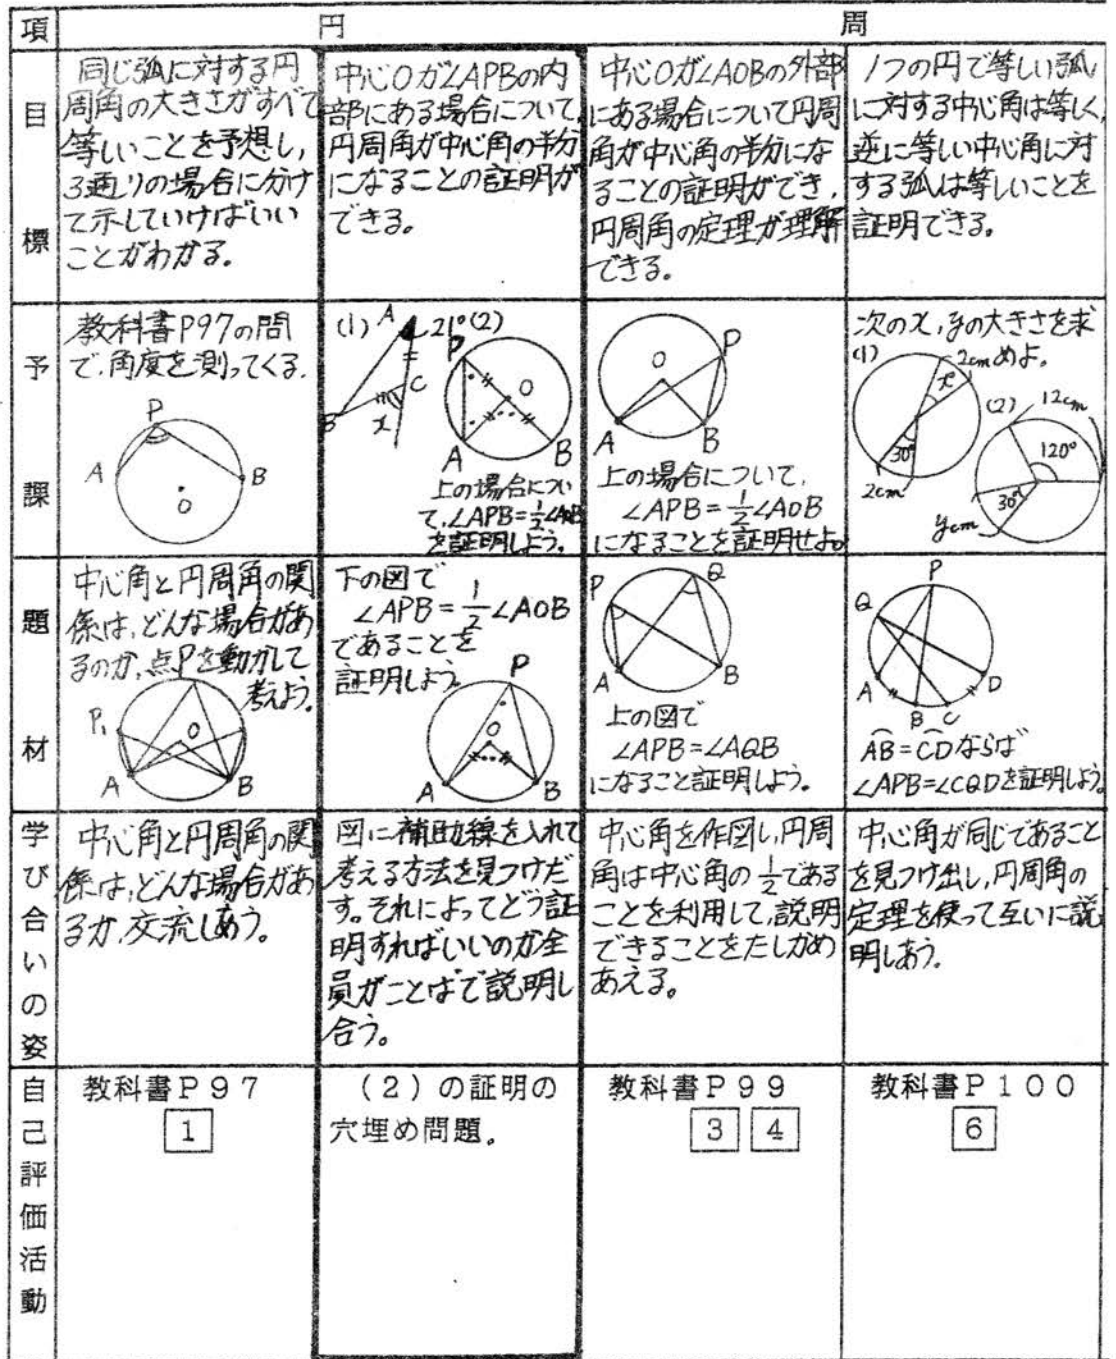 項
円
周
目標
同じ弧に対する円
周角の大きさがすべて
等しいことを予想し,
3通りの場合に分け
て示していけばいい
ことがわかる。
中心Oが∠APBの内
部にある場合について,
円周角が中心角の半分
になることの証明が
できる。
中心Oが∠AOBの外部
にある場合について円周
角が中心角の半分にな
ることの証明ができ,
円周角の定理が理解
できる。
1つの円で等しい弧
に対する中心角は等しく,
逆に等しい中心角に対
する弧は等しいことを
証明できる。
予課
教科書P97の問
で,角度を測ってくる.
P
A
B
O
(1)
A
21°
(2)
B
C
x
P
O
A
B
上の場合につい
て,∠APB=1/2∠AOB
を証明しよう。
O
P
A
B
上の場合について,
∠APB=1/2∠AOB
になることを証明せよ。
次のx,yの大きさを求
めよ。
(1)
2cm
x
30°
2cm
(2)
12cm
120°
30°
ycm
題材
中心角と円周角の関
係は,どんな場合があ
るのか,点Pを動かして
考えよう。
P
P₁
O
A
B
下の図で
∠APB=1/2∠AOB
であることを
証明しよう。
P
O
A
B
P
Q
A
B
上の図で
∠APB=∠AQB
になること証明しよう。
P
Q
A
B
C
D
⌒AB=⌒CDならば
∠APB=∠CQDを証明しよう
学び合いの姿
中心角と円周角の関
係は,どんな場合があ
るか,交流しあう。
図に補助線を入れて
考える方法を見つけだ
す。それによってどう証
明すればいいのか全
員がことばで説明し
合う。
中心角を作図し,円周
角は中心角の1/2である
ことを利用して,説明
できることをたしかめ
あえる。
中心角が同じであること
を見つけ出し,円周角の
定理を使って互いに説
明しあう。
自己評価活動
教科書P97
1
(2)の証明の
穴埋め問題。
教科書P99
3 4
教科書P100
6